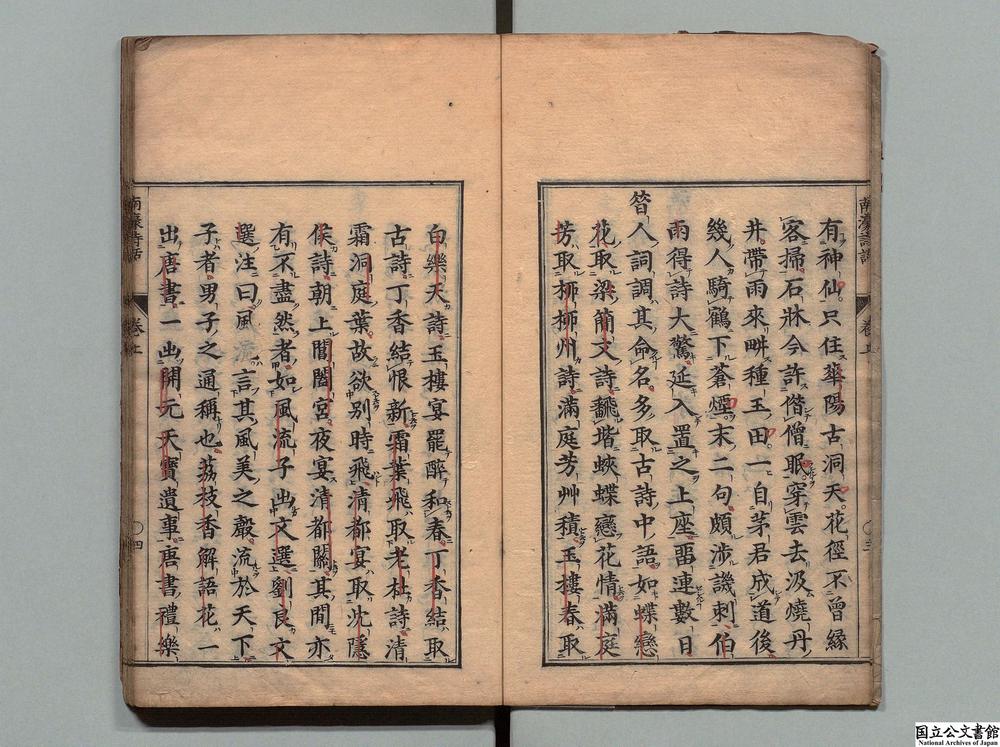 有神仙只住華陽古洞天花徑不曾緣
客掃石牀今許偕僧眠穿雲去汲燒丹
井帶雨來畊種玉田一自茅君成道後
幾人騎鶴下蒼煙末二句頗涉譏刺伯
雨得詩大驚延入置之上座畱連數日
昔人詞調其命名多取古詩中語如蝶戀
花取梁簡文詩翻堦蛺蝶戀花情滿庭
芳取柳柳州詩滿庭芳艸積玉樓春取
白樂天詩玉樓宴罷醉和春丁香結取
古詩丁香結恨新霜葉飛取老杜詩清
霜洞庭葉故欲别時飛清都宴取沈隱
侯詩朝上閶闔宮夜宴清都闕其間亦
有不盡然者如風流子出文選劉良文
選注曰風流言其風美之聲流於天下
子者男子之通稱也荔枝香解語花一
出唐書一出開元天寶遺事唐書禮樂
南濠詩話
卷上
〇三
南濠詩話
卷上
〇四
国立公文書館
National Archives of Japan